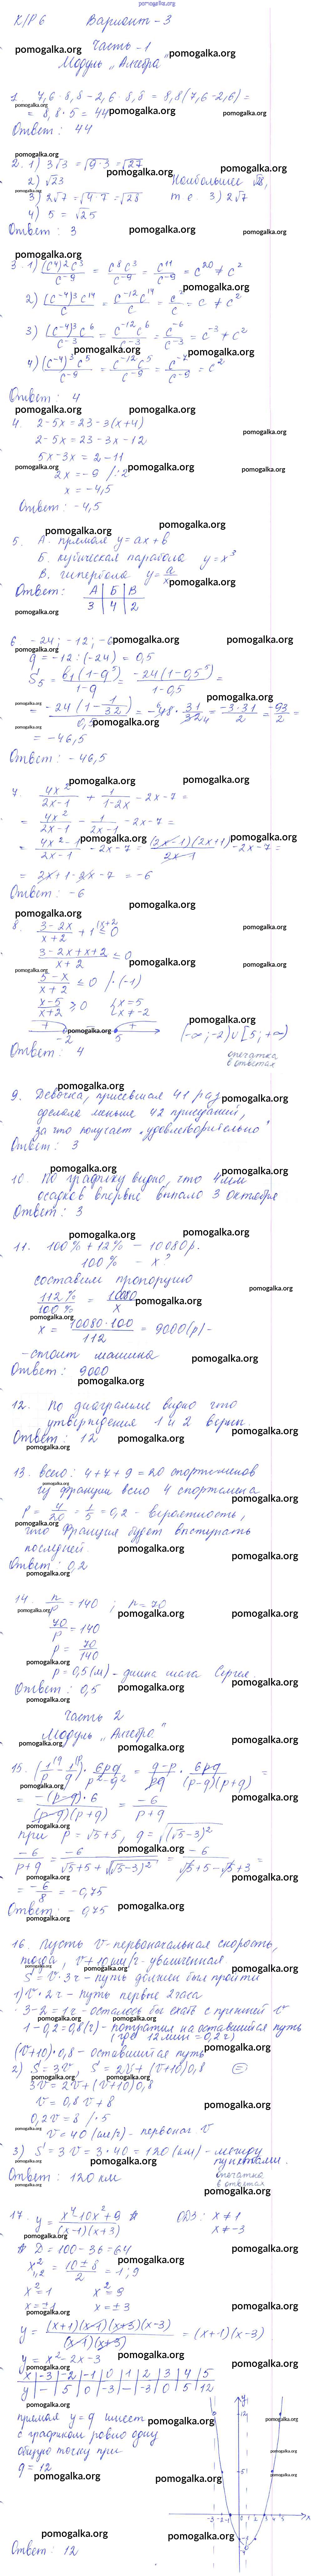 К/Р 6 Вариант - 3
Часть - 1
Модуль „Алгебра"
1. 7,6 · 8,8 - 2,6 · 8,8 = 8,8(7,6 - 2,6) =
= 8,8 · 5 = 44
Ответ: 44
2. 1) 3√3 = √(9·3) = √27
2) √23 Наибольшее √28,
3) 2√7 = √(4·7) = √28 т.е. 3) 2√7
4) 5 = √25
Ответ: 3
3. 1) (c⁴)²c³/c⁻⁹ = c⁸c³/c⁻⁹ = c¹¹/c⁻⁹ = c²⁰ ≠ c²
2) (c⁻⁴)³c¹⁴/c = c⁻¹²c¹⁴/c = c²/c = c ≠ c²
3) (c⁻⁴)³c⁶/c⁻³ = c⁻¹²c⁶/c⁻³ = c⁻⁶/c⁻³ = c⁻³ ≠ c²
4) (c⁻⁴)³c⁵/c⁻⁹ = c⁻¹²c⁵/c⁻⁹ = c⁻⁷/c⁻⁹ = c²
Ответ: 4
4. 2 - 5x = 23 - 3(x+4)
2 - 5x = 23 - 3x - 12
5x - 3x = 2 - 11
2x = -9 /:2
x = -4,5
Ответ: -4,5
5. А. прямая y = ax + b
Б. кубическая парабола y = x³
В. гипербола y = a/x
Ответ: А Б В
3 4 2
6 -24; -12; -6
q = -12 : (-24) = 0,5
S₅ = b₁(1-q⁵)/1-q = -24(1-0,5⁵)/1-0,5 =
= -24(1 - 1/32)/0,5 = -48 · 31/32 = -3·31/2 = -93/2 =
= -46,5
Ответ: -46,5
7. 4x²/2x-1 + 1/1-2x - 2x - 7 =
= 4x²/2x-1 - 1/2x-1 - 2x - 7 =
= 4x²-1/2x-1 - 2x - 7 = (2x-1)(2x+1)/2x-1 - 2x - 7 =
= 2x + 1 - 2x - 7 = -6
Ответ: -6
8. 3-2x/x+2 + 1 ≤ 0
3-2x+x+2/x+2 ≤ 0
5-x/x+2 ≤ 0 /·(-1)
x-5/x+2 ≥ 0 x = 5
x ≠ -2
+ - +
-2 5 (-∞; -2) ∪ [5; +∞)
Ответ: 4 опечатка
в ответах
9. Девочка, присевшая 41 раз,
сделала меньше 42 приседаний,
за что получает „удовлетворительно"
Ответ: 3
10. По графику видно, что 4 мм
осадков впервые выпало 3 октября
Ответ: 3
11. 100% + 12% - 10080 р.
100% - x?
составим пропорцию
112%/100% = 10080/x
x = 10080·100/112 = 9000 (р) -
- стоит машина
Ответ: 9000
12. По диаграмме видно что
утверждения 1 и 2 верны.
Ответ: 12
13. всего: 4 + 7 + 9 = 20 спортсменов
из Франции всего 4 спортсмена
P = 4/20 = 1/5 = 0,2 - вероятность,
что Франция будет выступать
последней.
Ответ: 0,2
14. n/p = 140; n = 70
70/p = 140
p = 70/140
p = 0,5 (м) - длина шага Сергея.
Ответ: 0,5
Часть 2
Модуль „Алгебра"
15. (1/p - 1/q) · 6pq/p²-q² = q-p/pq · 6pq/(p-q)(p+q) =
= -(p-q)·6/(p-q)(p+q) = -6/p+q
при p = √5+5, q = √(√5-3)²
-6/p+q = -6/√5+5+√(√5-3)² = -6/√5+5-√5+3 =
= -6/8 = -0,75
Ответ: -0,75
16. Пусть v - первоначальная скорость,
тогда, v + 10 км/ч - увеличенная
S = v · 3ч - путь должен был пройти
1) v · 2ч - путь первые 2 часа
3 - 2 = 1ч - осталось бы ехать с прежней v
1 - 0,2 = 0,8 (ч) - потратил на оставшийся путь
(где 12 мин = 0,2 ч)
(v+10) · 0,8 - оставшийся путь
2) S = 3v, S = 2v + (v+10)0,8
3v = 2v + (v+10)0,8
v = 0,8v + 8
0,2v = 8 /·5
v = 40 (км/ч) - первонач. v
3) S = 3v = 3 · 40 = 120 (км) - между
пунктами.
Ответ: 120 км опечатка
в ответах
17. y = x⁴-10x²+9/(x-1)(x+3) # ОДЗ: x ≠ 1
x ≠ -3
# D = 100 - 36 = 64
x²₁,₂ = 10±8/2 = 1; 9
x² = 1 x² = 9
x = ±1 x = ±3
y = (x+1)(x-1)(x+3)(x-3)/(x-1)(x+3) = (x+1)(x-3)
y = x² - 2x - 3
x -3 -2 -1 0 1 2 3 4 5
y - 5 0 -3 - -3 0 5 12
прямая y = q имеет
с графиком ровно одну
общую точку при
q = 12
Ответ: 12
pomogalka.org